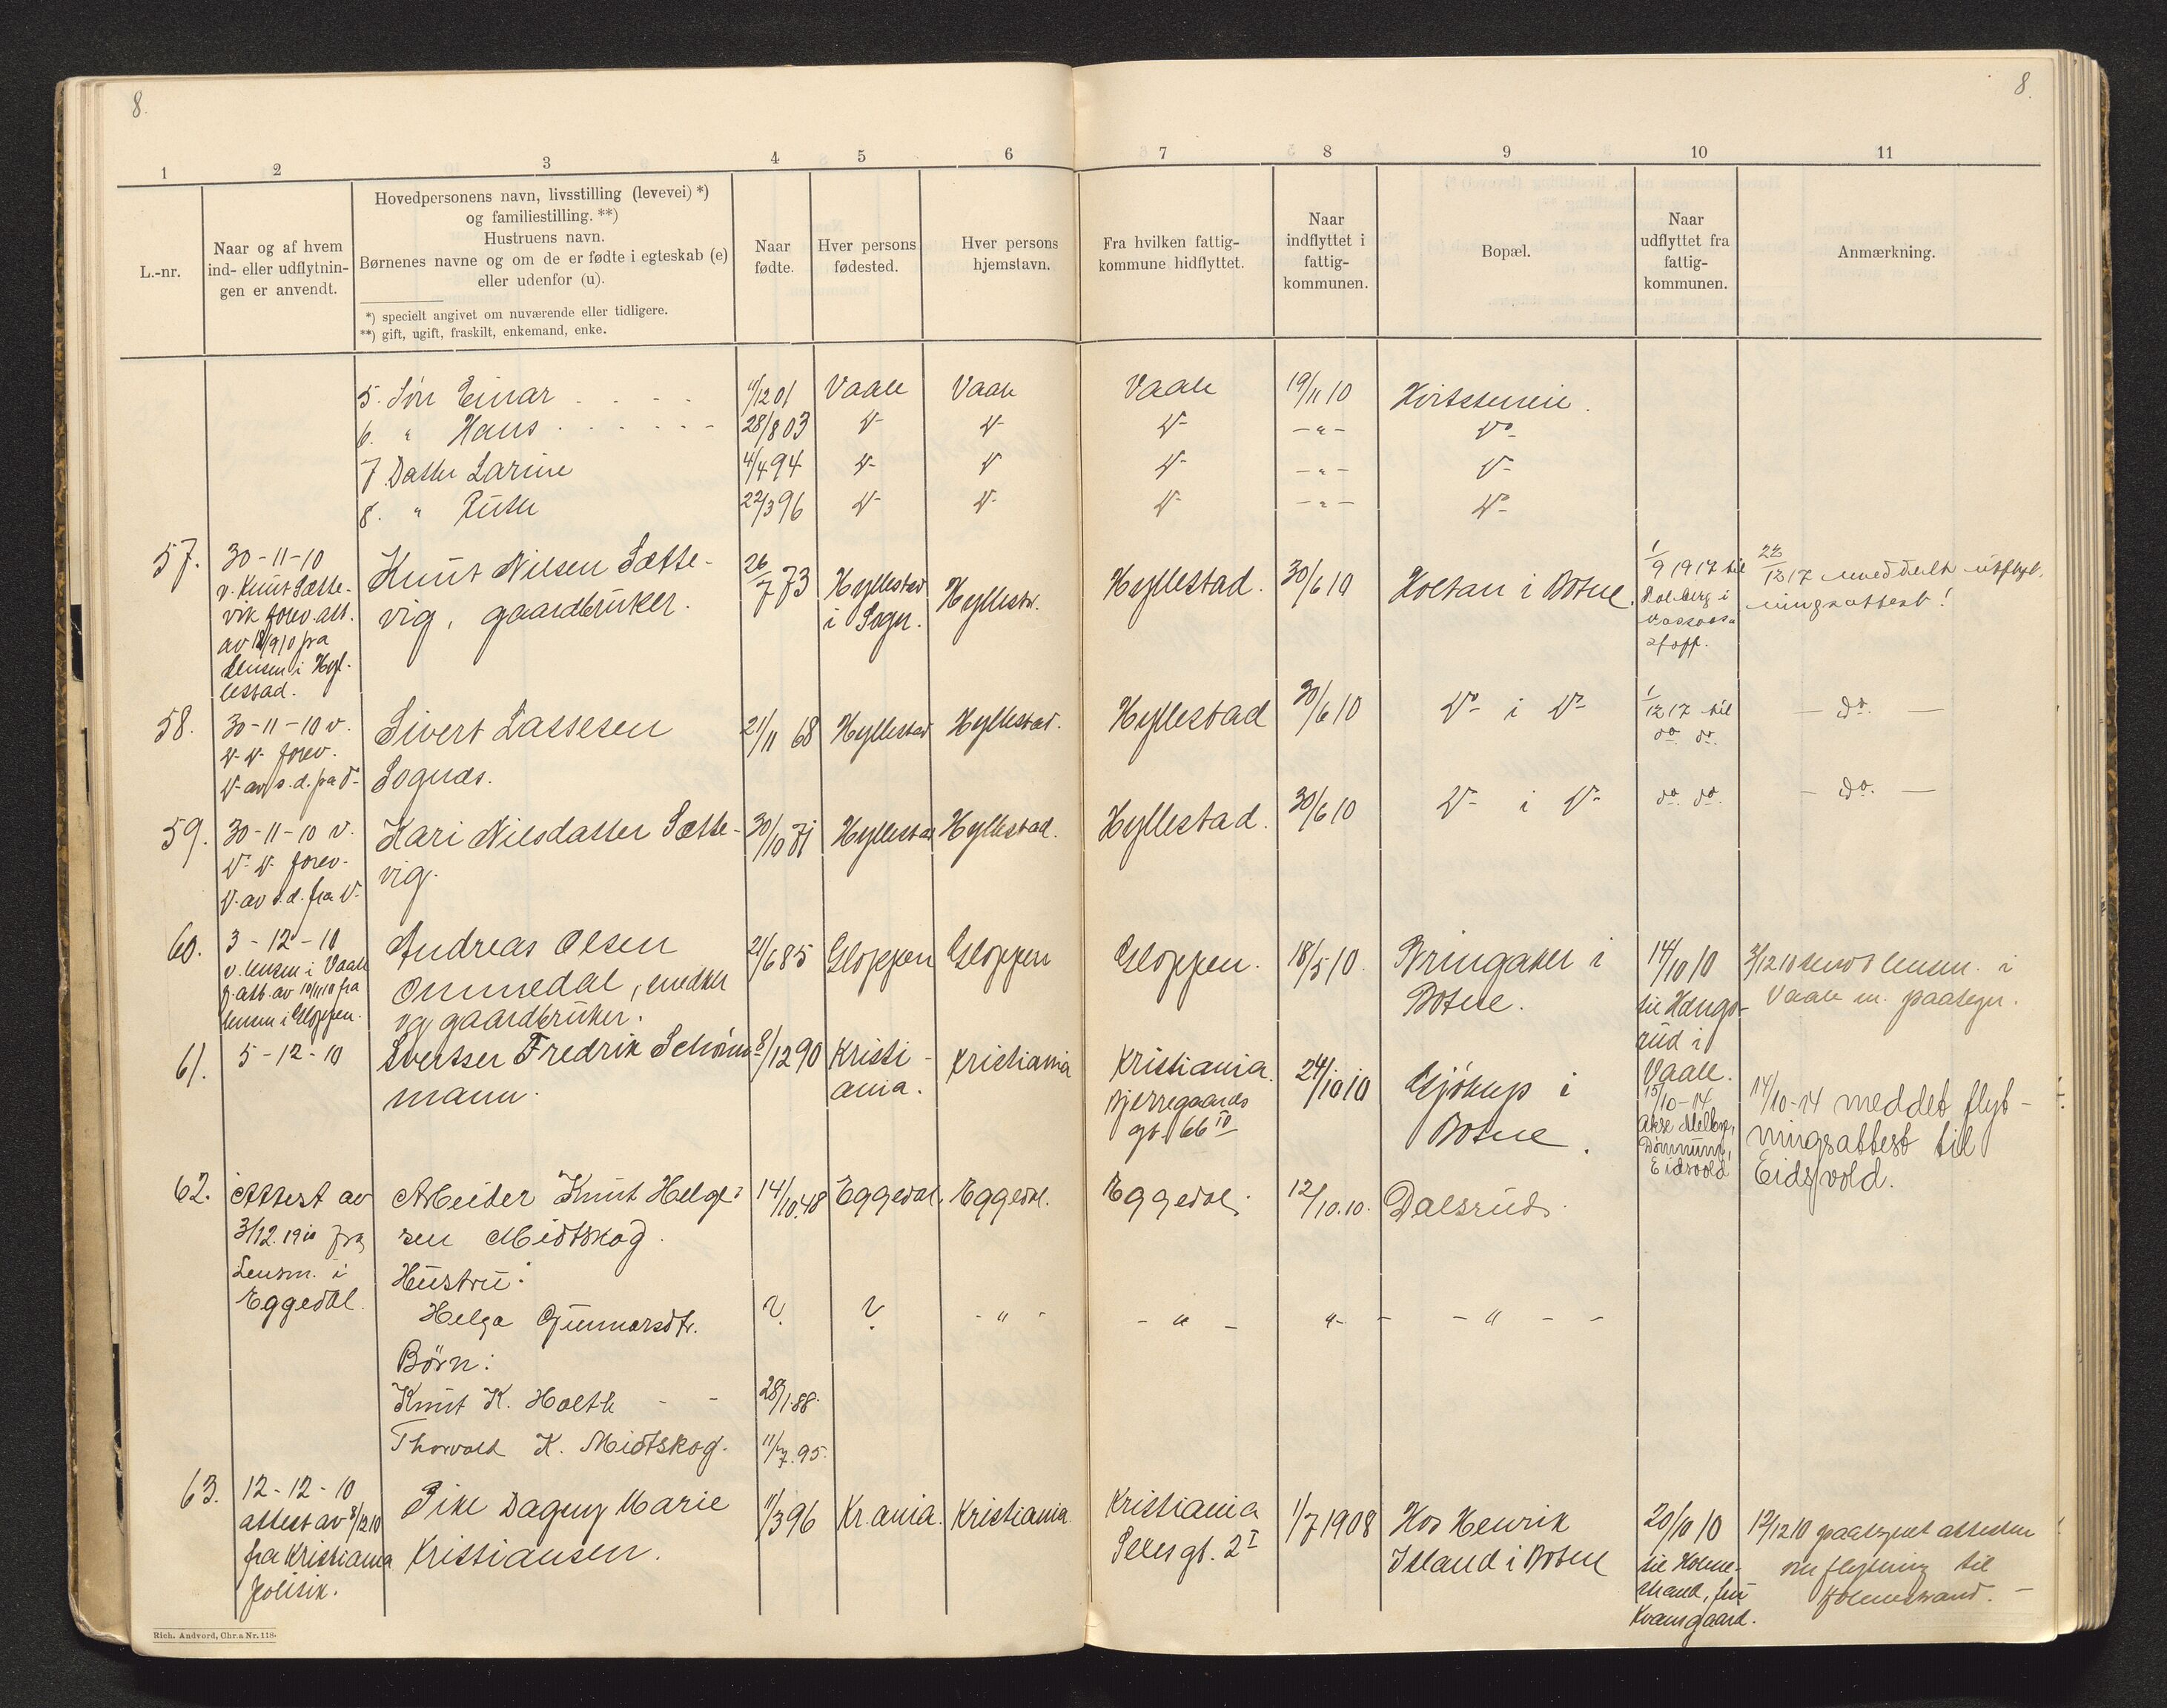 8.
8.
1 2 3 4 5 6 7 8 9 10 11
L.-nr.
Naar og af hvem
ind- eller udflytnin-
gen er anvendt.
Hovedpersonens navn, livsstilling (levevei) *)
og familiestilling. **)
Hustruens navn.
Børnenes navne og om de er fødte i egteskab (e)
eller udenfor (u).
*) specielt angivet om nuværende eller tidligere.
**) gift, ugift, fraskilt, enkemand, enke.
Naar
fødte.
Hver persons
fødested.
Hver persons
hjemstavn.
Fra hvilken fattig-
kommune hidflyttet.
Naar
indflyttet i
fattig-
kommunen.
Bopæl.
Naar
udflyttet fra
fattig-
kommunen.
Anmærkning.
5. Søn Einar . . . . 11/12 01 Vaale Vaale Vaale 19/11 10
6. " Hans . . . . . . 28/8 03 D- D- D- -"- Do-
7. Datter Larine 4/4 94 D- D D- -"- D-
8. " Ruth 22/3 96 D- D- D- -"- Do-
57.
30-11-10
v. Knut Sætte-
vik forev. att.
av 12/9 10 fra
lensm. i Hyl-
lestad.
Knut Nilsen Sætte-
vig, gaardbruker.
26/7 73
Hyllestad
i Sogn.
Hyllestr.
Hyllestad.
30/6 10
Holtan i Botne.
1/9 1917 til
Solberg i
22/12 17 meddelt utflyt-
ningsattest!
58.
30-11-10 v.
D- D- forev.
D- av s.d. fra D-
Sivert Lassesen
Sognds.
21/11 68
Hyllestad
Hyllestad.
Hyllestad
30/6 10
Do- i Do-
1/12 17 til
do. do.
- do. -
59.
30-11-10 v.
D- D- forev.
D- av s.d. fra D-
Kari Nilsdatter Sætte-
vig.
30/10 71
Hyllestad
Hyllestad.
Hyllestad.
30/6 10
D- i D-
do. do.
- do. -
60.
3-12-10
v. lensm. i Vaale
f. att. av 10/11 10 fra
lensm. i Gloppen.
Andreas Olsen
Ommedal, snedker
og gaardbruker.
21/6 85
Gloppen
Gloppen
Gloppen.
18/5 10.
Bringaker i
Botne.
14/10 10
til Haugs-
rud i
Vaale.
3/12 10 sendt lensm. i
Vaale m. paategn.
61.
5-12-10
Sverser Fredrik Schøne-
mann.
8/12 90
Kristi-
ania.
Kristiania
Kristiania.
Bjerregaards
gt. 66 IV
24/10 10
Gjøkup i
Botne.
15/10-14
Eidsvold
14/10-14 meddelt flyt-
ningsattest til
Eidsvold.
62.
Attest av
3/12. 1910 fra
Lensm. i
Eggedal.
Arbeider Knut Helge-
sen Midtskog.
14/10.48
Eggedal.
Eggedal.
Eggedal.
12/10.10.
Dalsrud.
Hustru:
Helga Gunnarsdtr. ? ? - " - - " - " - - " - -
Børn:
Knut K. Holth - - 28/1.88.
Thorvald K. Midtskog. 11/7.95.
63.
12-12-10
attest av 8/12 10
fra Kristiania
politik.
Pike Dagny Marie
Kristiansen.
11/3 96
Kr.ania.
Kristiania
Kristiania
Pelesgt. 2 I
1/7 1908
Hos Henrik
Island i Botne
20/10 10
til Holme-
strand, fru
Kvamsgaard.
12/12 10 paategnet attesten
om flytning til
Holmestrand. -
Rich. Andvord, Chr.a Nr. 118.